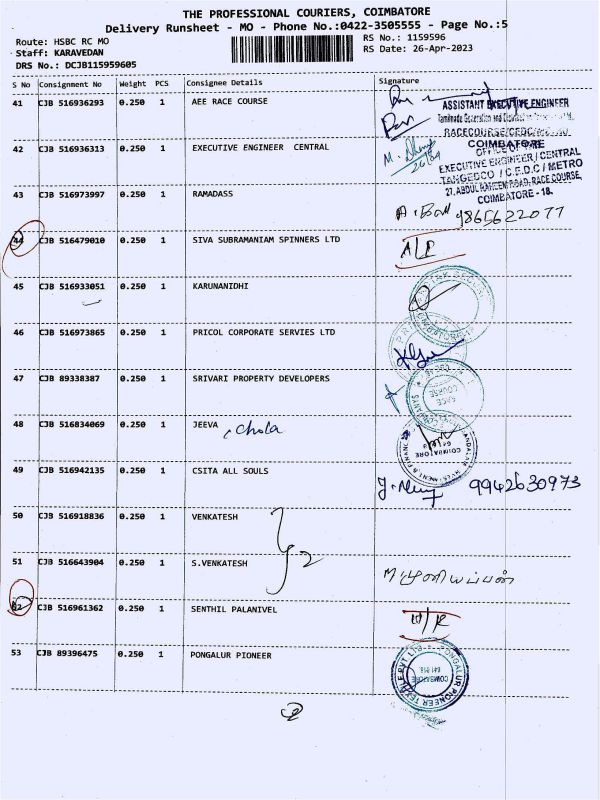 THE PROFESSIONAL COURIERS, COIMBATORE
Delivery Runsheet - MO - Phone No.:0422-3505555 - Page No.:5
Route: HSBC RC MO
RS No.: 1159596
Staff: KARAVEDAN
RS Date: 26-Apr-2023
DRS No.: DCJB115959605
S No Consignment No Weight PCS Consignee Details Signature
41 CJB 516936293 0.250 1 AEE RACE COURSE
ASSISTANT EXECUTIVE ENGINEER
RACECOURSE/CEDC/METRO
COIMBATORE
42 CJB 516936313 0.250 1 EXECUTIVE ENGINEER CENTRAL
26/04
OFFICE OF THE
EXECUTIVE ENGINEER / CENTRAL
TANGEDCO / C.E.D.C / METRO
21, ABDUL RAHEEM ROAD, RACE COURSE,
COIMBATORE - 18.
43 CJB 516973997 0.250 1 RAMADASS
9865622077
44 CJB 516479010 0.250 1 SIVA SUBRAMANIAM SPINNERS LTD
45 CJB 516933051 0.250 1 KARUNANIDHI
46 CJB 516973865 0.250 1 PRICOL CORPORATE SERVIES LTD
47 CJB 89338387 0.250 1 SRIVARI PROPERTY DEVELOPERS
RACE COURSE
48 CJB 516834069 0.250 1 JEEVA , chola
COIMBATORE
49 CJB 516942135 0.250 1 CSITA ALL SOULS
9942630973
50 CJB 516918836 0.250 1 VENKATESH
51 CJB 516643904 0.250 1 S.VENKATESH
2
52 CJB 516961362 0.250 1 SENTHIL PALANIVEL
53 CJB 89396475 0.250 1 PONGALUR PIONEER
PONGALUR PIONEER TEXTILE PVT LTD
COIMBATORE
641 018.